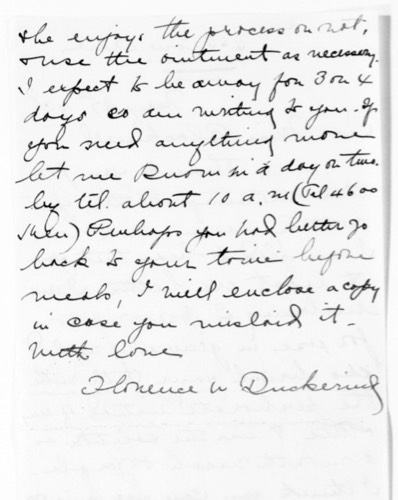 she enjoys the process or not,
& use the ointment as necessary.
I expect to be away for 3 or 4
days so am writing to you. If
you need anything more
let me know in a day or two.
by tel. about 10 a.m. (Tel 4600
) Perhaps you had better go
back to your tonic before
meals, I will enclose a copy
in case you mislaid it -
With love
Florence W Duckering